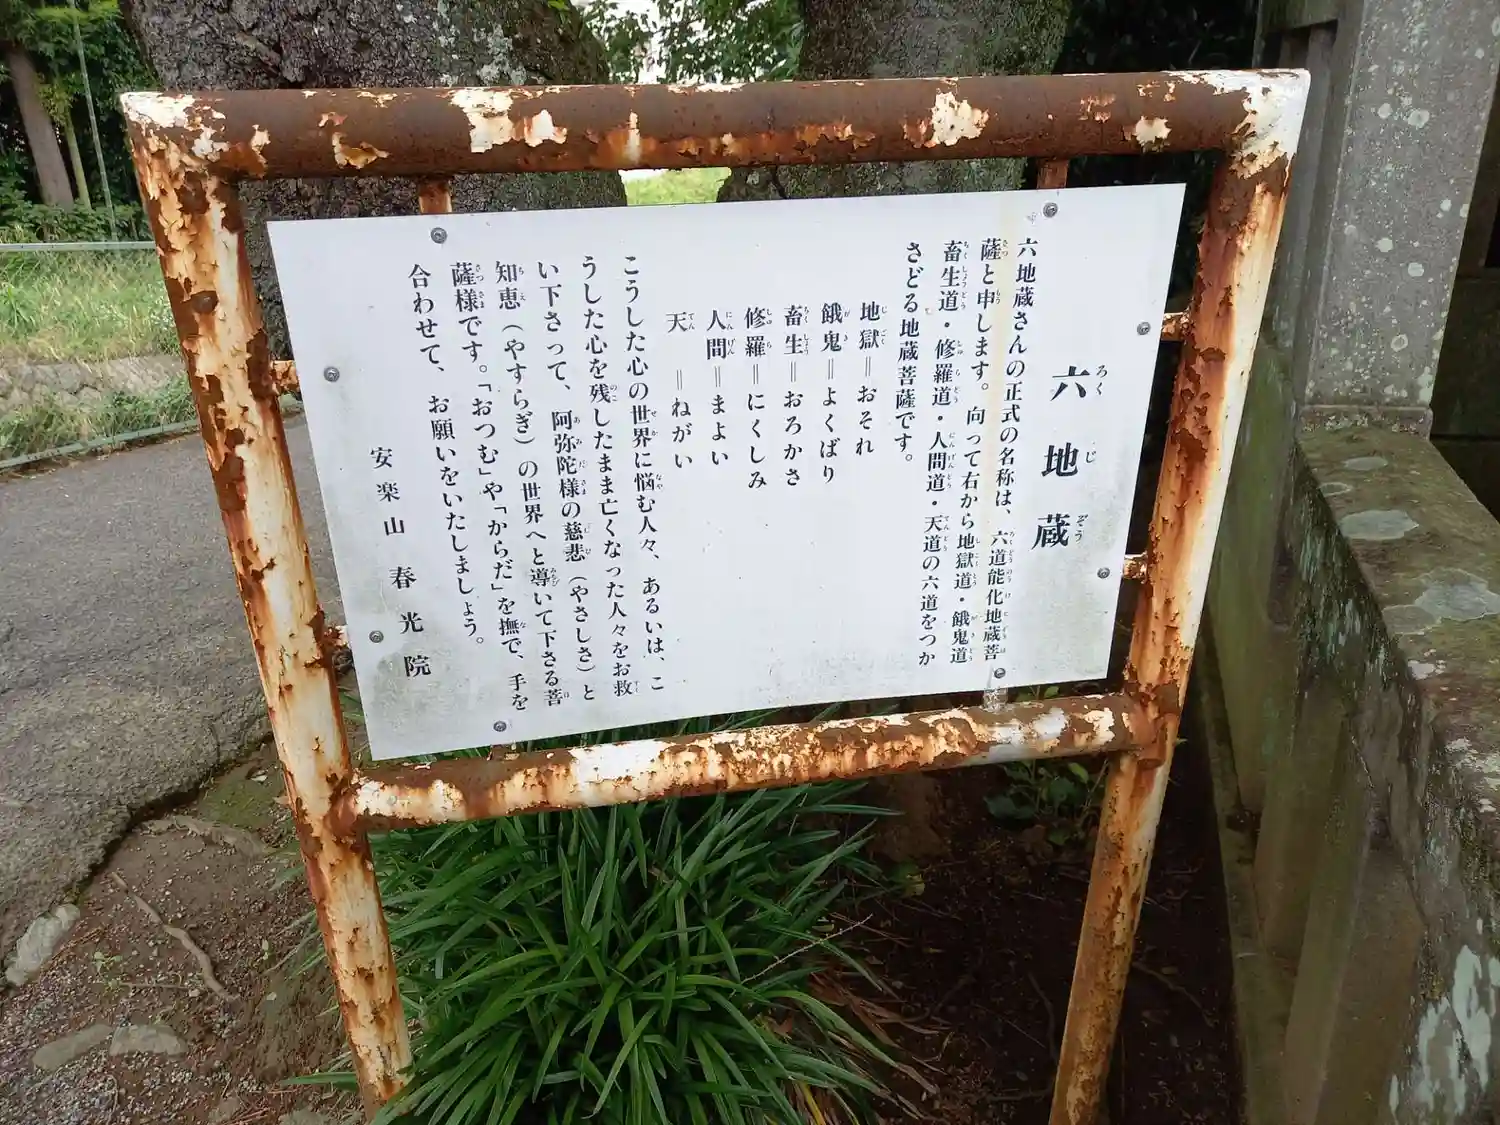 六地蔵
六地蔵さんの正式の名称は、六道能化地蔵菩
薩と申します。向って右から地獄道・餓鬼道
畜生道・修羅道・人間道・天道の六道をつか
さどる地蔵菩薩です。
地獄＝おそれ
餓鬼＝よくばり
畜生＝おろかさ
修羅＝にくしみ
人間＝まよい
天＝ねがい
こうした心の世界に悩む人々、あるいは、こ
うした心を残したまま亡くなった人々をお救
い下さって、阿弥陀様の慈悲（やさしさ）と
知恵（やすらぎ）の世界へと導いて下さる菩
薩様です。「おつむ」や「からだ」を撫で、手を
合わせて、お願いをいたしましょう。
安楽山 春光院